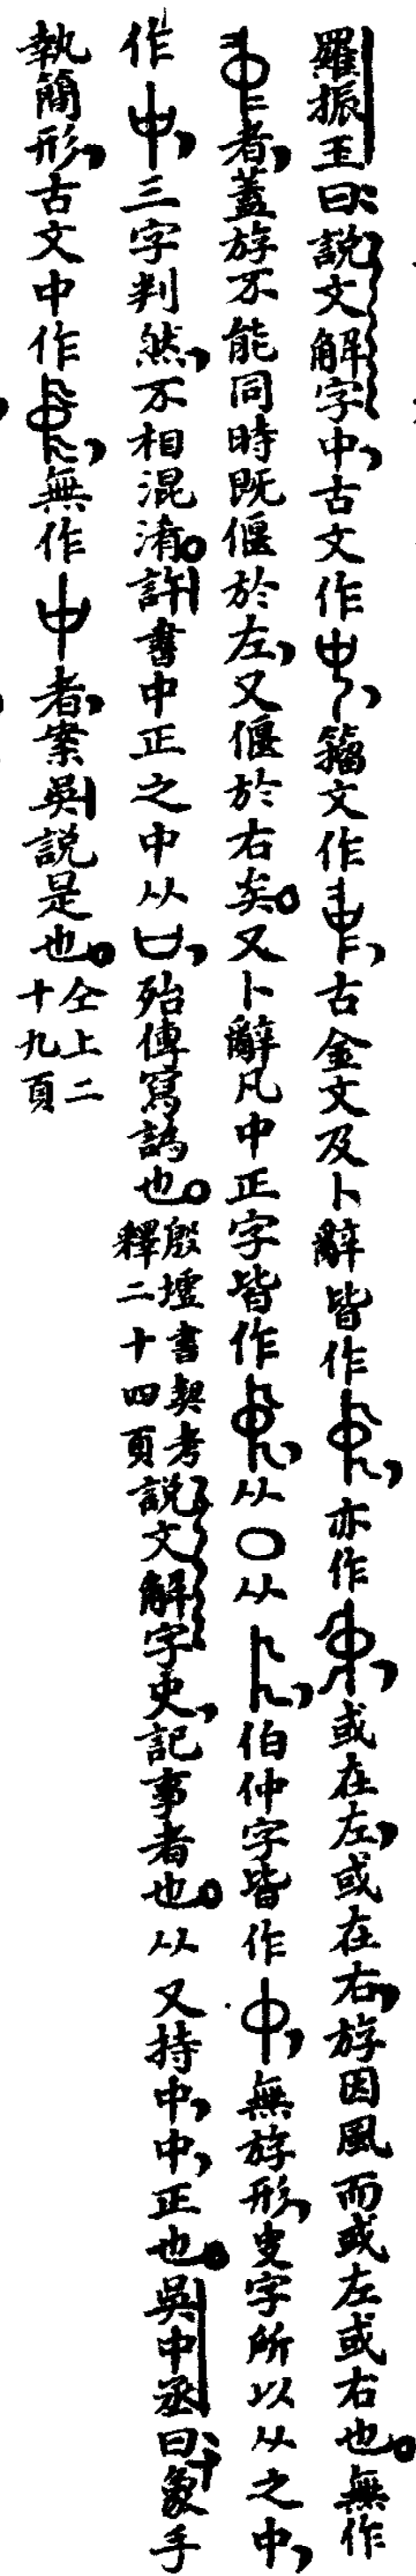 羅振玉曰：說文解字中，古文作，籀文作，古金文及卜辭皆作，亦作，或在左，或在右，斿因風而或左或右也。無作
者，蓋斿不能同時既偃於左，又偃於右矣。又卜辭凡中正字皆作，从〇从，伯仲字皆作中，無斿形，叓字所以从之中，
作，三字判然，不相混淆。許書中正之中从，殆傳寫譌也。殷墟書契考釋二十四頁說文解字史，記事者也。从又持中，中，正也。吳中丞曰：象手
執簡形，古文中作，無作者，案吳說是也。仝上二十九頁